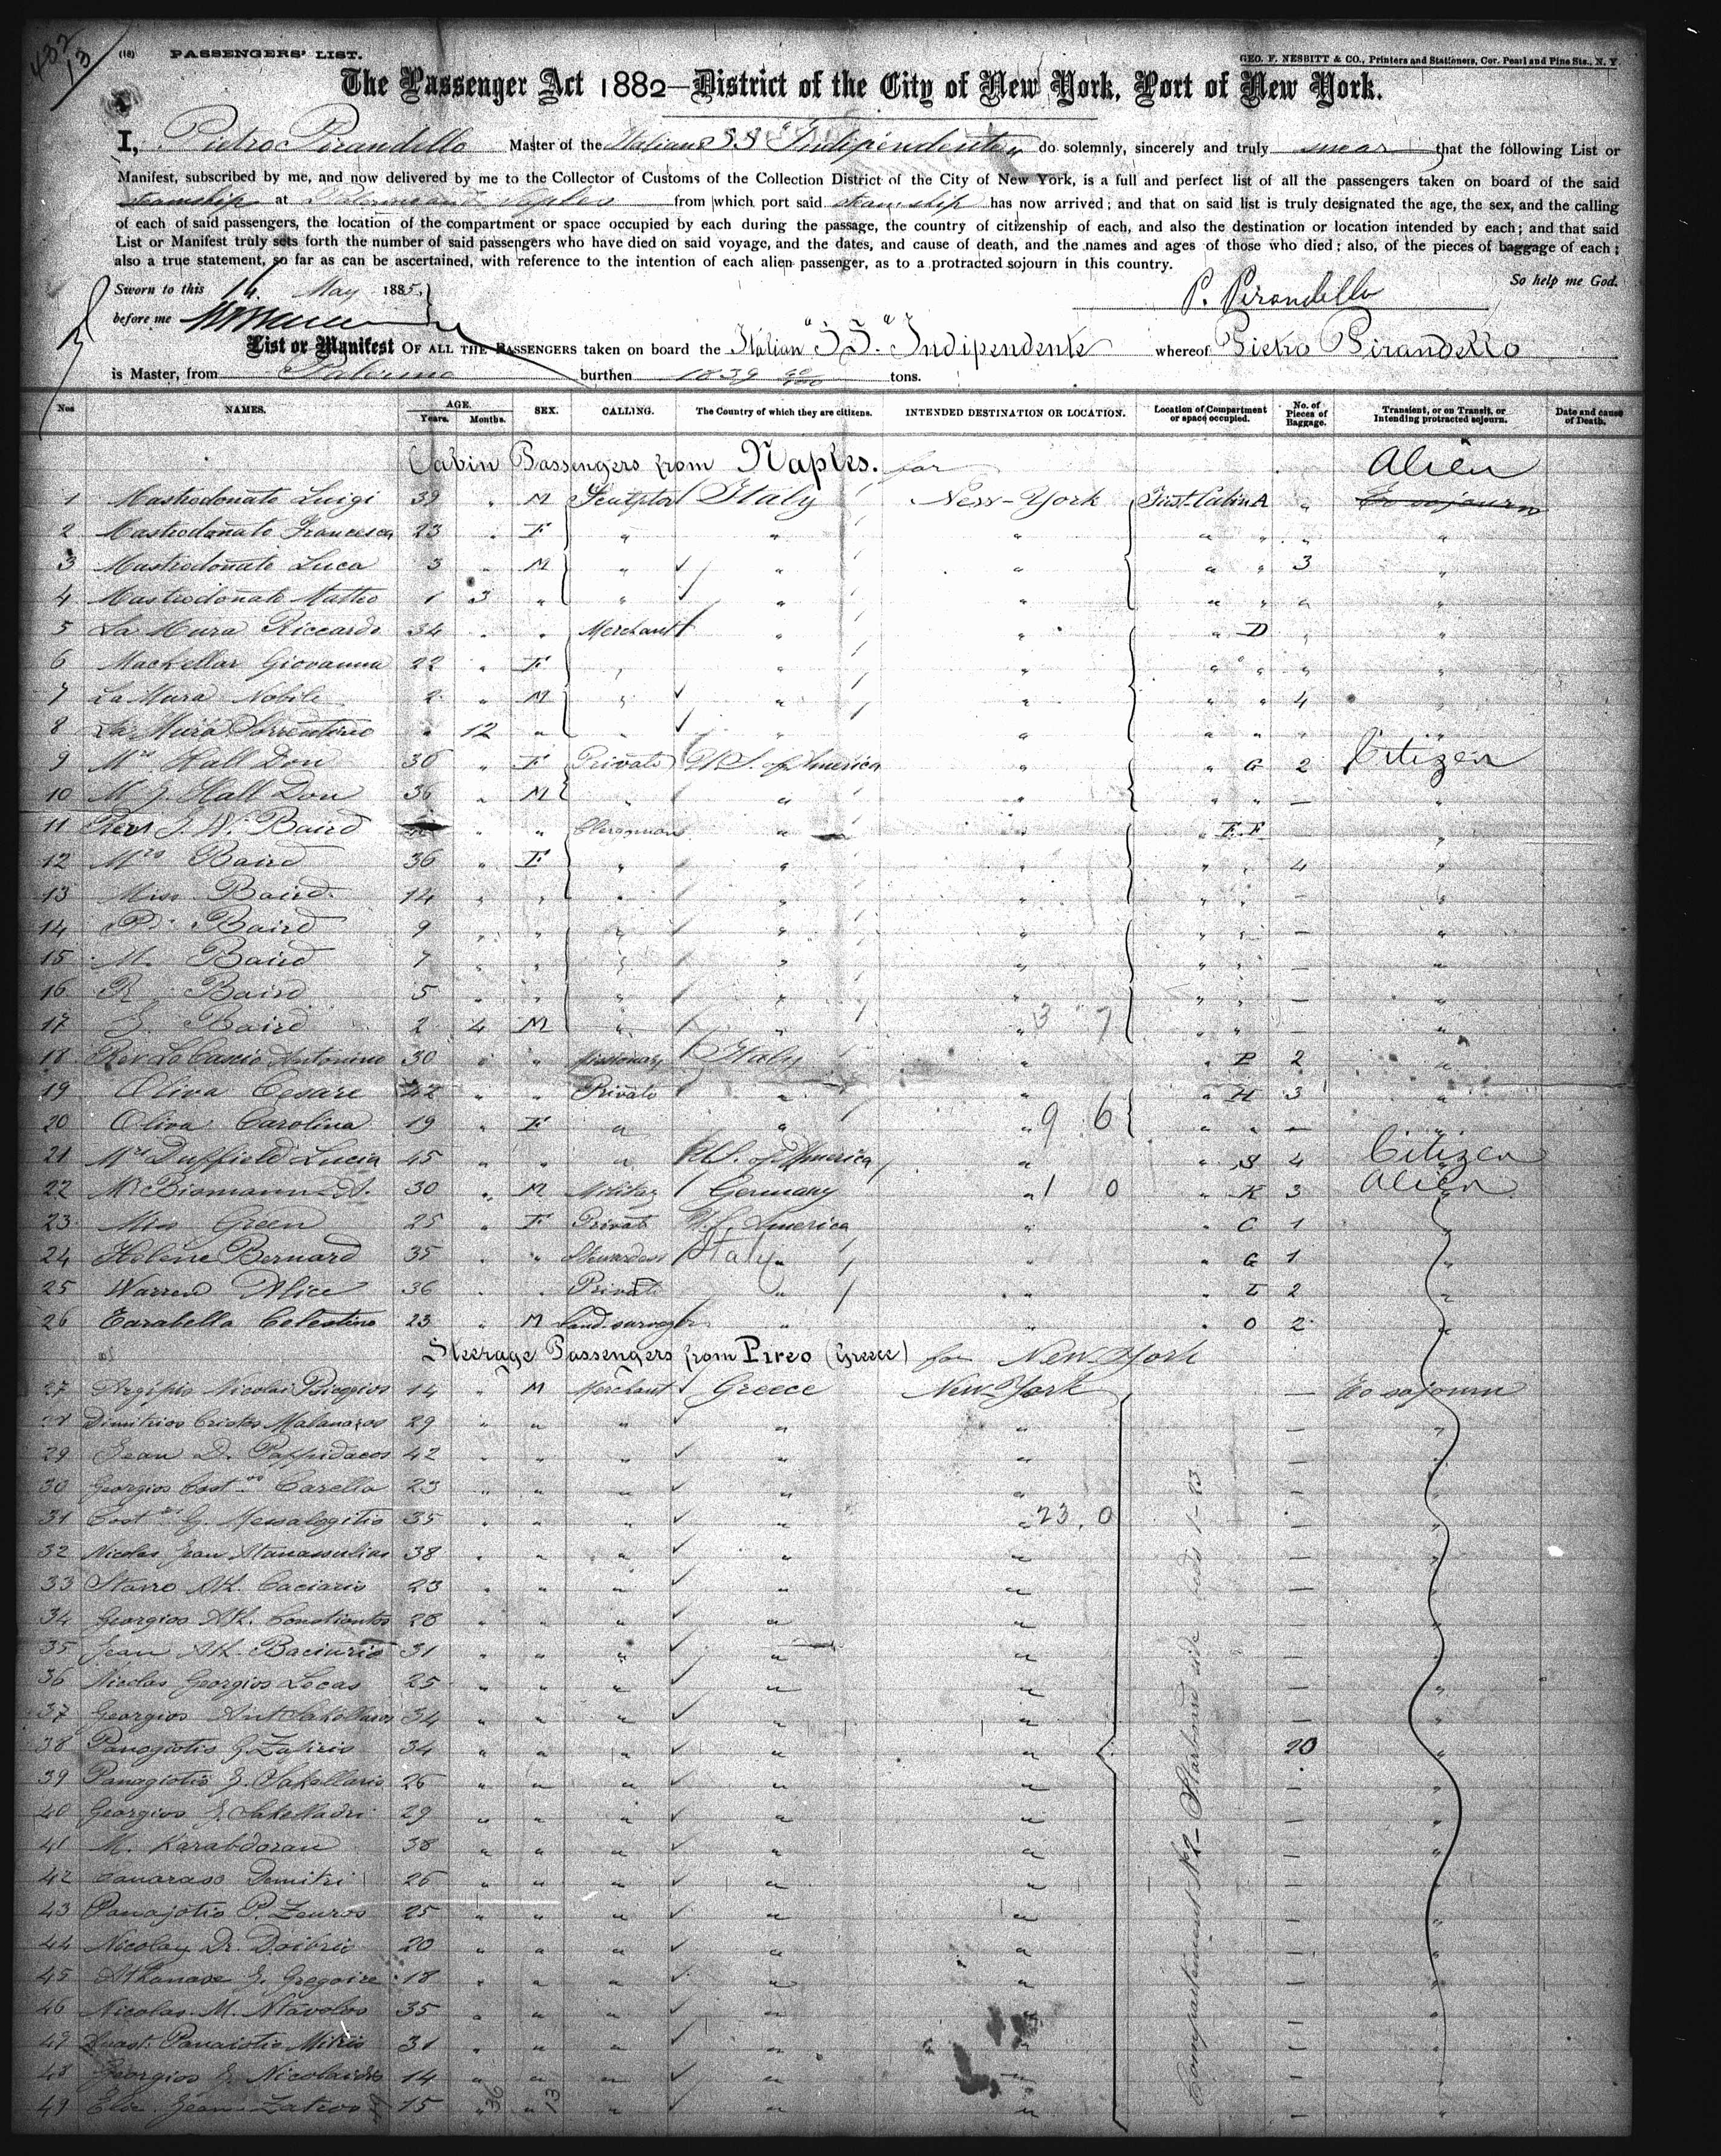 432
13
(18) PASSENGERS' LIST.
GEO. F. NESBITT & CO., Printers and Stationers, Cor. Pearl and Pine Sts., N. Y.
The Passenger Act 1882—District of the City of New York, Port of New York.
I, Pietro Pirandello Master of the Italian SS "Indipendente" do solemnly, sincerely and truly swear that the following List or
Manifest, subscribed by me, and now delivered by me to the Collector of Customs of the Collection District of the City of New York, is a full and perfect list of all the passengers taken on board of the said
steamship at Palermo and Naples from which port said steamship has now arrived; and that on said list is truly designated the age, the sex, and the calling
of each of said passengers, the location of the compartment or space occupied by each during the passage, the country of citizenship of each, and also the destination or location intended by each; and that said
List or Manifest truly sets forth the number of said passengers who have died on said voyage, and the dates, and cause of death, and the names and ages of those who died; also, of the pieces of baggage of each;
also a true statement, so far as can be ascertained, with reference to the intention of each alien passenger, as to a protracted sojourn in this country.
So help me God.
Sworn to this 16 May 1885,
P. Pirandello
before me
List or Manifest OF ALL THE PASSENGERS taken on board the Italian "SS." Indipendente whereof Pietro Pirandello
is Master, from Palermo burthen 1839 tons.
Nos NAMES. AGE. Years. Months. SEX. CALLING. The Country of which they are citizens. INTENDED DESTINATION OR LOCATION. Location of Compartment or space occupied. No. of Pieces of Baggage. Transient, or on Transit, or Intending protracted sojourn. Date and cause of Death.
Cabin Passengers from Naples. for Alien
1 Mastrodonato Luigi 39 " M Sculptor Italy New-York First Cabin A " To sojourn
2 Mastrodonato Francesca 23 " F " " " " " " "
3 Mastrodonato Luca 3 " M " " " " " 3 "
4 Mastrodonato Matteo 1 3 " " " " " " " "
5 La Mura Riccardo 34 " " Merchant " " " D " "
6 Mackellar Giovanna 22 " F " " " " " " "
7 La Mura Nobile 2 " M " " " " " 4 "
8 La Mura Sorrentino " 12 " " " " " " " "
9 Mrs Hall Don 36 " F Private U.S. of America " " G 2 Citizen
10 M. J. Hall Don 36 " M " " " " " — "
11 Rev J. W. Baird " " Clergyman " " E.F "
12 Mrs Baird 36 " F " " " " " 4 "
13 Miss Baird 14 " " " " " " " — "
14 P. Baird 9 " " " " " " " — "
15 M. Baird 7 " " " " " " " — "
16 R. Baird 5 " " " " " " " — "
17 J. Baird 2 4 M " " " 3 7 " " — "
18 Rev Lo Cascio Antonino 30 " " Missionary Italy " " P 2 "
19 Oliva Cesare 42 " " Private " " " H 3 "
20 Oliva Carolina 19 " F " " " 9 6 " " — "
21 Mrs Duffield Lucia 45 " " " U.S. of America " " S 4 Citizen
22 Mr Bismann A. 30 " M Military Germany " 1 0 " K 3 Alien
23 Miss Green 25 " F Private U.S. America " " C 1 "
24 Helene Bernard 35 " " Stewardess Italy " " G 1 "
25 Warren Alice 36 " " Private " " " I 2 "
26 Carabella Celestino 23 " M Land surveyor " " " O 2 "
Steerage Passengers from Pireo (Greece) for New York
27 Nicolai 14 " M Merchant Greece New-York — To sojourn
28 Dimitrios Cristos 29 " " " " " — "
29 Jean D. 42 " " " " " — "
30 Georgios Cost. Carella 23 " " " " " — "
31 Cost. G. 35 " " " " " 23. 0 — "
32 Nicolas Jean 38 " " " " " — "
33 Stavro Ath. Caciaris 23 " " " " " — "
34 Georgios Ath. 28 " " " " " — "
35 Jean Ath. 31 " " " " " — "
36 Nicolas Georgios Locas 25 " " " " " — "
37 Georgios Ant. 34 " " " " " — "
38 Panagiotis G. Zafiris 34 " " " " " 20 "
39 Panagiotis G. Sakellaris 26 " " " " " — "
40 Georgios G. 29 " " " " " — "
41 M. Karabdoran 38 " " " " " — "
42 Demitri 26 " " " " " — "
43 Panajotis P. Zeuros 25 " " " " " — "
44 Nicolay Dr. 20 " " " " " — "
45 Athanase G. Gregoire 18 " " " " " — "
46 Nicolas M. 35 " " " " " — "
47 Panaiotis Mitris 31 " " " " " — "
48 Georgios G. Nicolaidis 14 " " " " " — "
49 Jean 15 " " " " " — "
Compartment No 2 - Starboard side beds 1-23
36 13